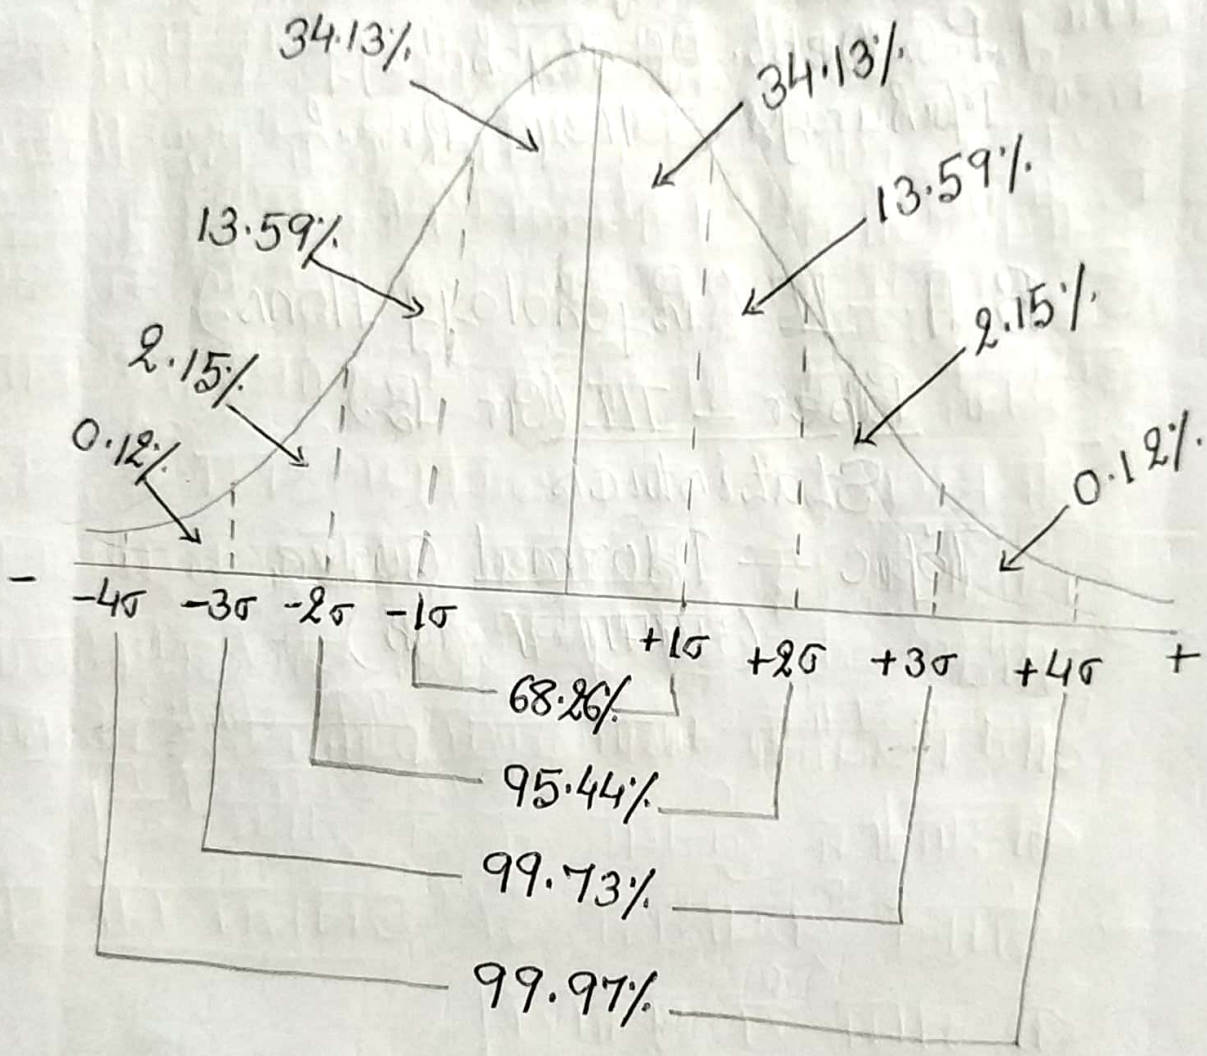 34.13%
34.13%
13.59%
13.59%
2.15%
2.15%
0.12%
0.12%
- -4σ -3σ -2σ -1σ +1σ +2σ +3σ +4σ +
68.26%
95.44%
99.73%
99.97%